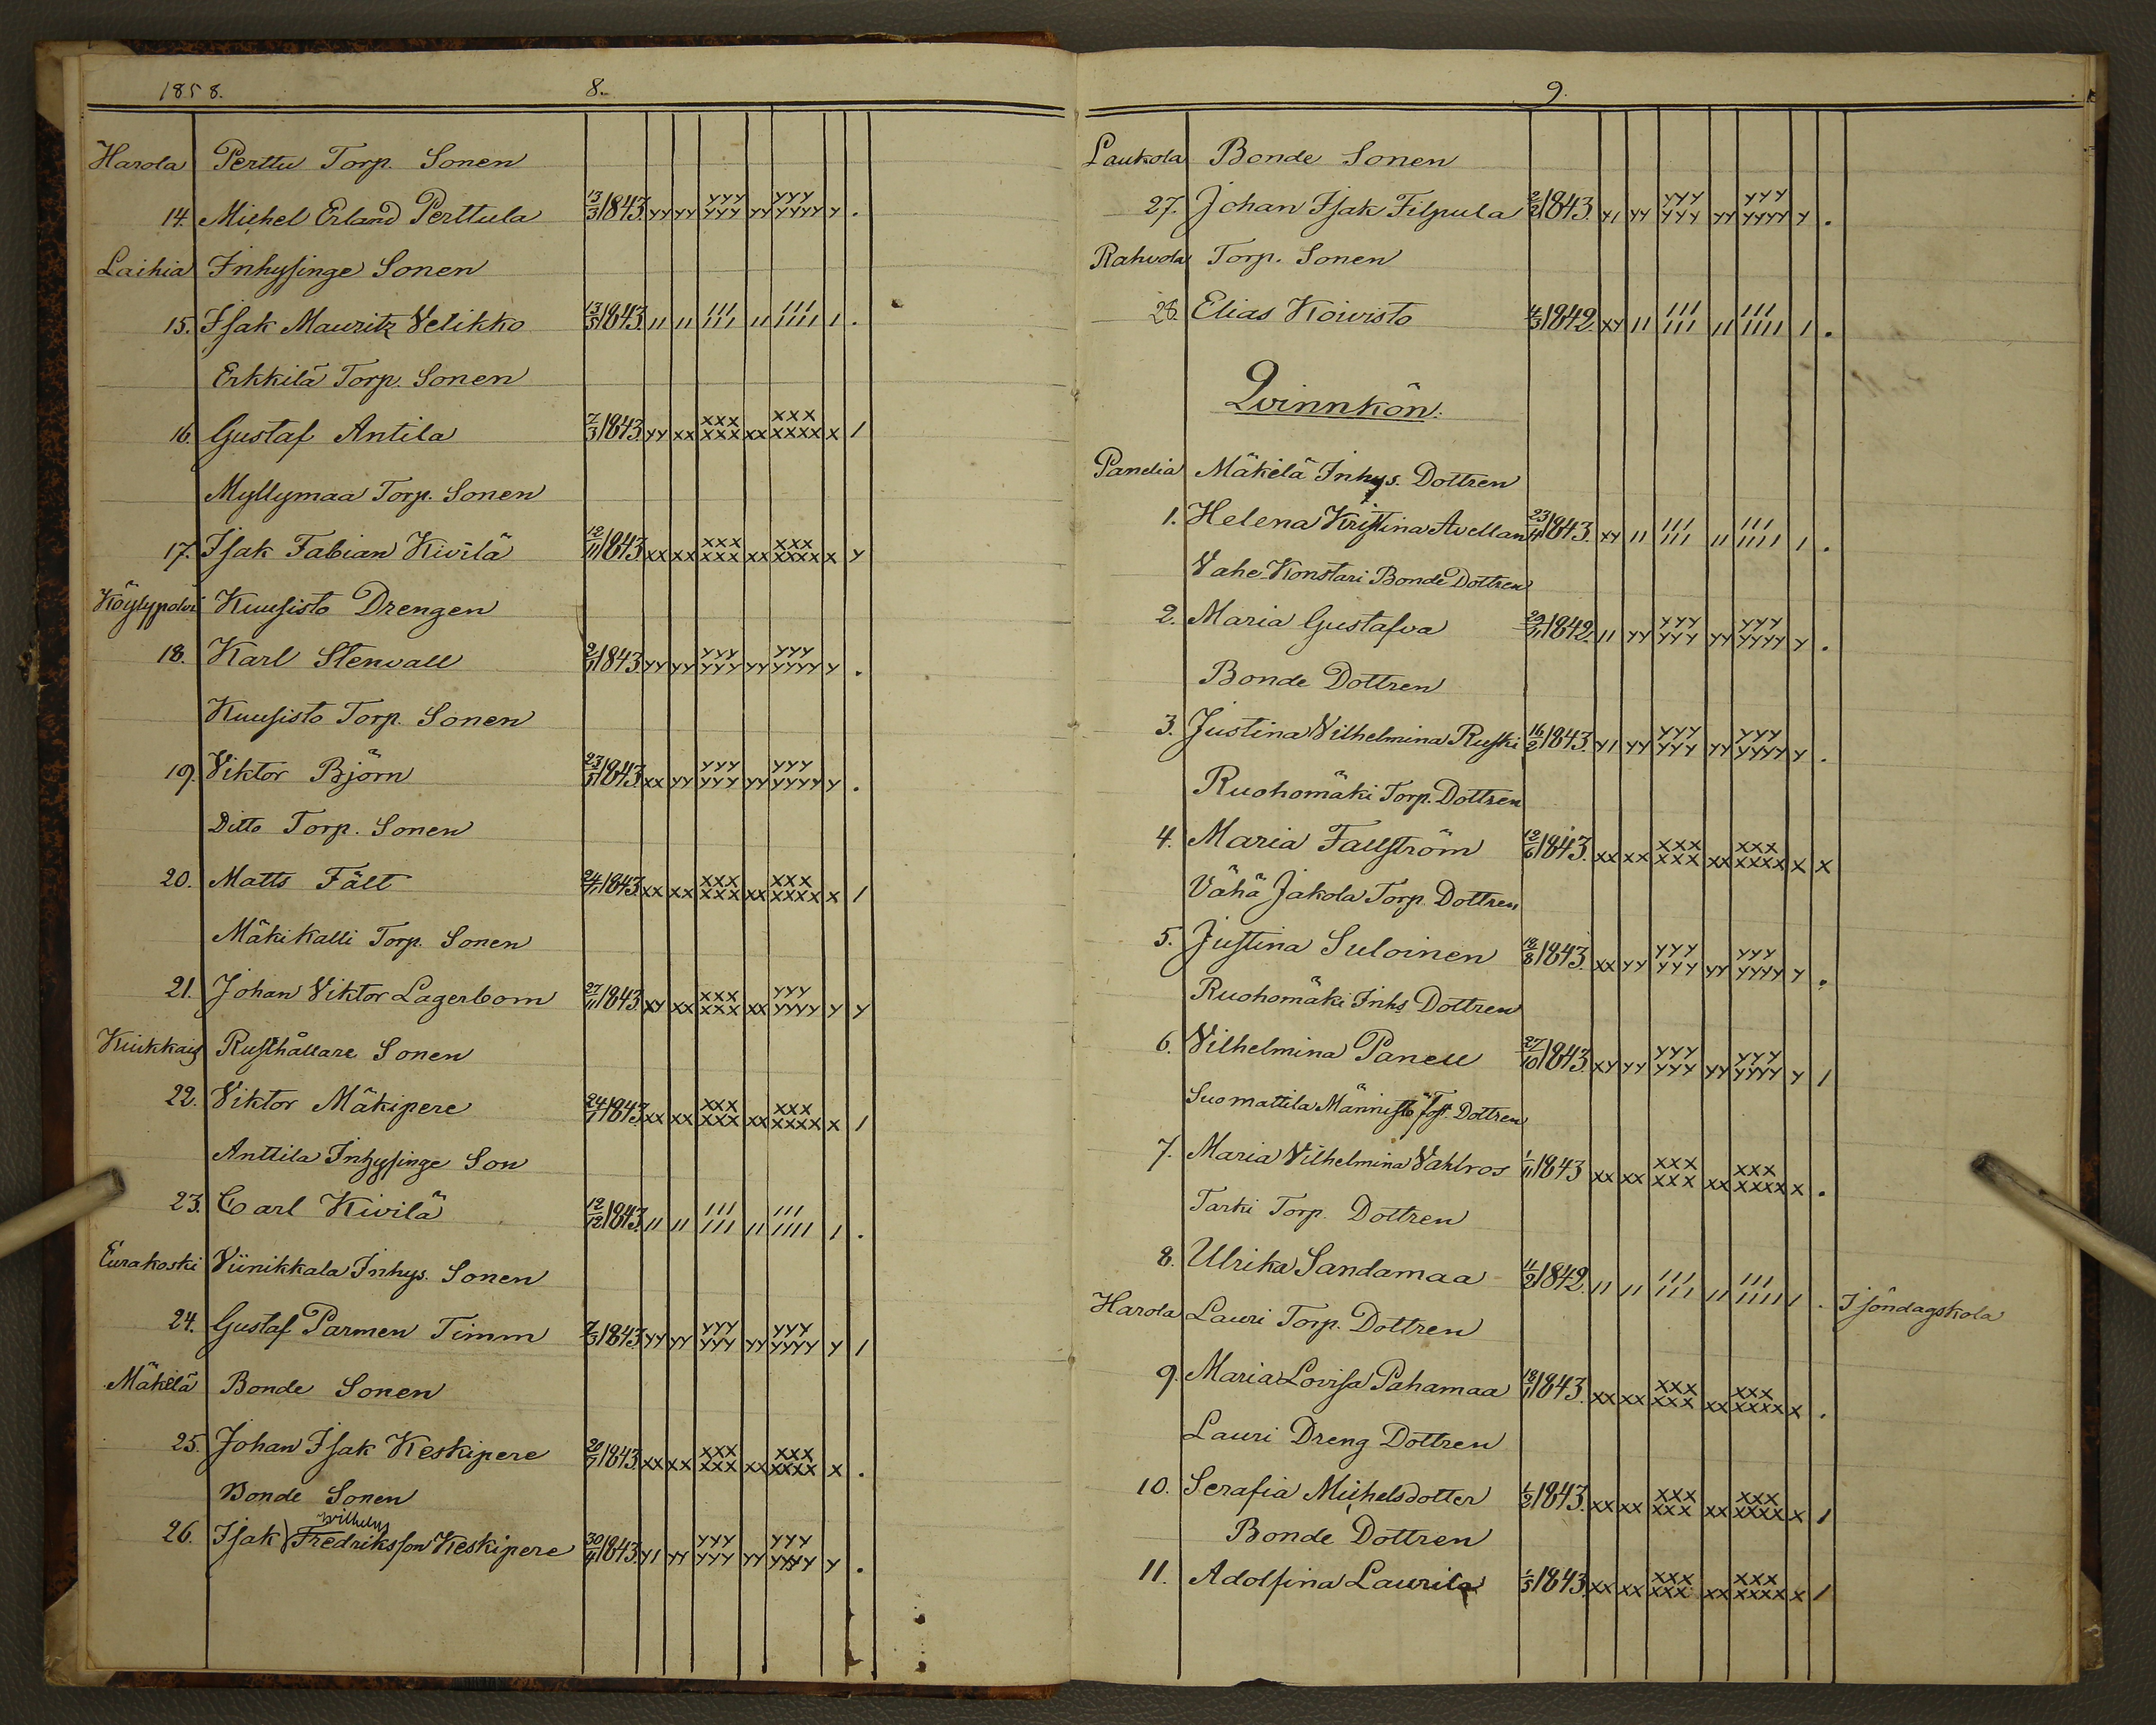 1858. 8.
Harola Perttu Torp. Sonen
14. Michel Erland Perttula 13/3 1843. yy yy yyy yyy yy yyy yyyy y .
Laihia Inhysinge Sonen
15. Isak Mauritz Velikko 13/5 1843. 11 11 111 111 11 111 1111 1 .
Erkkilä Torp. Sonen
16. Gustaf Antila 7/3 1843. yy xx xxx xxx xx xxx xxxx x 1
Myllymaa Torp. Sonen
17. Isak Fabian Kivilä 12/11 1843. xx xx xxx xxx xx xxx xxxx x y
Köylypolvi Kuusisto Drengen
18. Karl Stenvall 1843. yy yy yyy yyy yy yyy yyyy y .
Kuusisto Torp. Sonen
19. Viktor Björn 1843. xx yy yyy yyy yy yyy yyyy y .
Ditto Torp. Sonen
20. Matts Fält 1843. xx xx xxx xxx xx xxx xxxx x 1
Mäkikalli Torp. Sonen
21. Johan Viktor Lagerbom 27/11 1843. xy xx xxx xxx xx yyy yyyy y y
Kiukkais Rusthållare Sonen
22. Viktor Mäkipere 1843. xx xx xxx xxx xx xxx xxxx x 1
Anttila Inhysinge Son
23. Carl Kivilä 12/12 1843. 11 11 111 111 11 111 1111 1 .
Eurakoski Viinikkala Inhys. Sonen
24. Gustaf Parmen Timm 7/3 1843. yy yy yyy yyy yy yyy yyyy y 1
Mäkelä Bonde Sonen
25. Johan Isak Keskipere 1843. xx xx xxx xxx xx xxx xxxx x .
Bonde Sonen
Wilhelm
26. Isak Fredriksson Keskipere 1843. y1 yy yyy yyy yy yyy yyyy y .
9.
Laukola Bonde Sonen
27. Johan Isak Filpula 2/2 1843. y1 yy yyy yyy yy yyy yyyy y .
Rahvola Torp. Sonen
28. Elias Koivisto 4/3 1842. xy 11 111 111 11 111 1111 1 .
Qvinnkön.
Panelia Mäkelä Inhys. Dottren
1. Helena Kristina Avellan 1843. xy 11 111 111 11 111 1111 1 .
Vahe-Konstari Bonde Dottren
2. Maria Gustafva 29/11 1842. 11 yy yyy yyy yy yyy yyyy y .
Bonde Dottren
3. Justina Vilhelmina Ruski 16/2 1843. y1 yy yyy yyy yy yyy yyyy y .
Ruohomäki Torp. Dottren
4. Maria Fallström 12/6 1843. xx xx xxx xxx xx xxx xxxx x x
Vähä Jakola Torp. Dottren
5. Justina Suloinen 18/8 1843. xx yy yyy yyy yy yyy yyyy y .
Ruohomäki Inhs Dottren
6. Vilhelmina Panell 27/10 1843. xy yy yyy yyy yy yyy yyyy y 1
Suomattila Männistö Dottren
7. Maria Vilhelmina Vahlros 1/11 1843 xx xx xxx xxx xx xxx xxxx x .
Tarki Torp. Dottren
8. Ulrika Sandamaa 11/2 1842. 11 11 111 111 11 111 1111 1 . I söndagskola
Harola Lauri Torp. Dottren
9. Maria Lovisa Pahamaa 1843. xx xx xxx xxx xx xxx xxxx x .
Lauri Dreng Dottren
10. Serafia Michelsdotter 1/2 1843. xx xx xxx xxx xx xxx xxxx x 1
Bonde Dottren
11. Adolfina Laurila 1/5 1843. xx xx xxx xxx xx xxx xxxx x 1